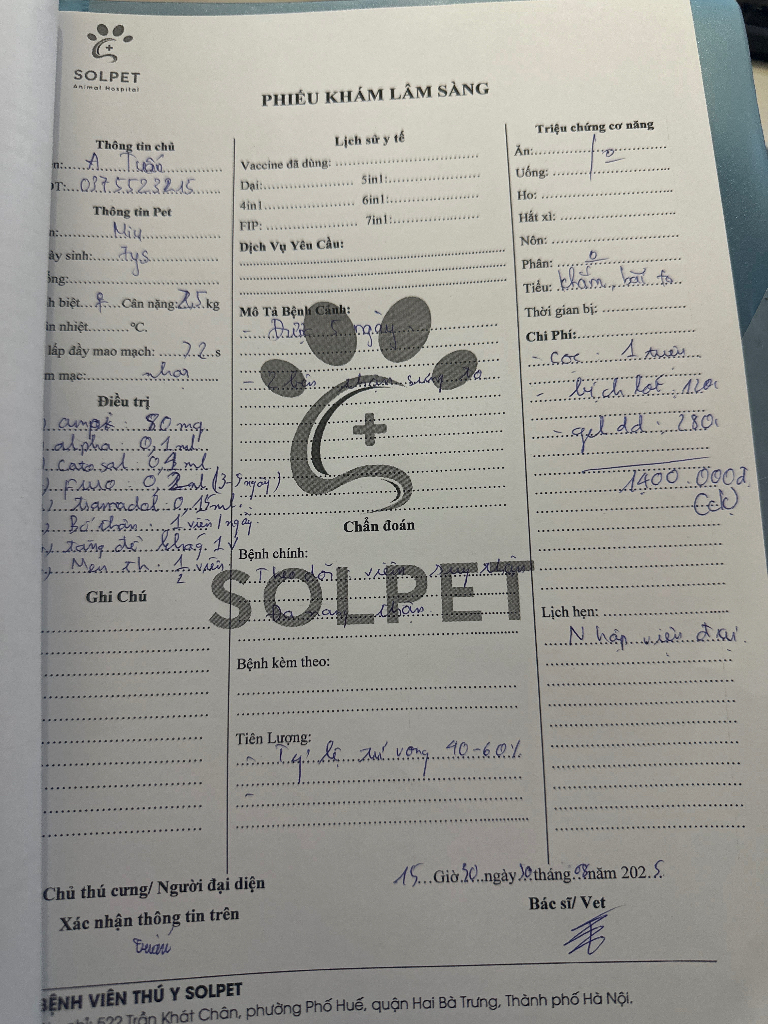 SOLPET
Animal Hospital
PHIẾU KHÁM LÂM SÀNG
Thông tin chủ
n: A Tuấn
ĐT: 0375523215
Thông tin Pet
n: Miu
ày sinh: 7ys
ống:
h biệt ♀ Cân nặng: 2,5 kg
ân nhiệt °C.
lấp đầy mao mạch: >2 s
m mạc: nhạt
Điều trị
ampk: 80 mg
alpha: 0,1 ml
catosal 0,4 ml
Furo: 0,2 ml (3-5 ngày)
tramadol 0,15ml
Bổ thận: 1 viên/ngày
tăng đề kháng. 1 v
Men th: 1/2 viên
Ghi Chú
Lịch sử y tế
Vaccine đã dùng:
Dại: 5in1:
4in1 6in1:
FIP: 7in1:
Dịch Vụ Yêu Cầu:
Mô Tả Bệnh Cảnh:
- 5 ngày
- 2 bên thận sưng to
SOLPET
Chẩn đoán
Bệnh chính:
Theo dõi viêm suy thận
Đa nang thận
Bệnh kèm theo:
Tiên Lượng:
- Tỷ lệ tử vong 40-60%
-
Triệu chứng cơ năng
Ăn:
Uống:
Ho:
Hắt xì:
Nôn:
Phân: 0
Tiểu: khắm, bãi to
Thời gian bị:
Chi Phí:
- cọc: 1 triệu
- bịch lót: 120
- gel dd: 280
1400 000đ
(ck)
Lịch hẹn:
Nhập viện đtrị
15 Giờ 30 ngày 30 tháng 08 năm 2025
Chủ thú cưng/ Người đại diện
Xác nhận thông tin trên
Bác sĩ/ Vet
BỆNH VIÊN THÚ Y SOLPET
chỉ: 522 Trần Khát Chân, phường Phố Huế, quận Hai Bà Trưng, Thành phố Hà Nội.